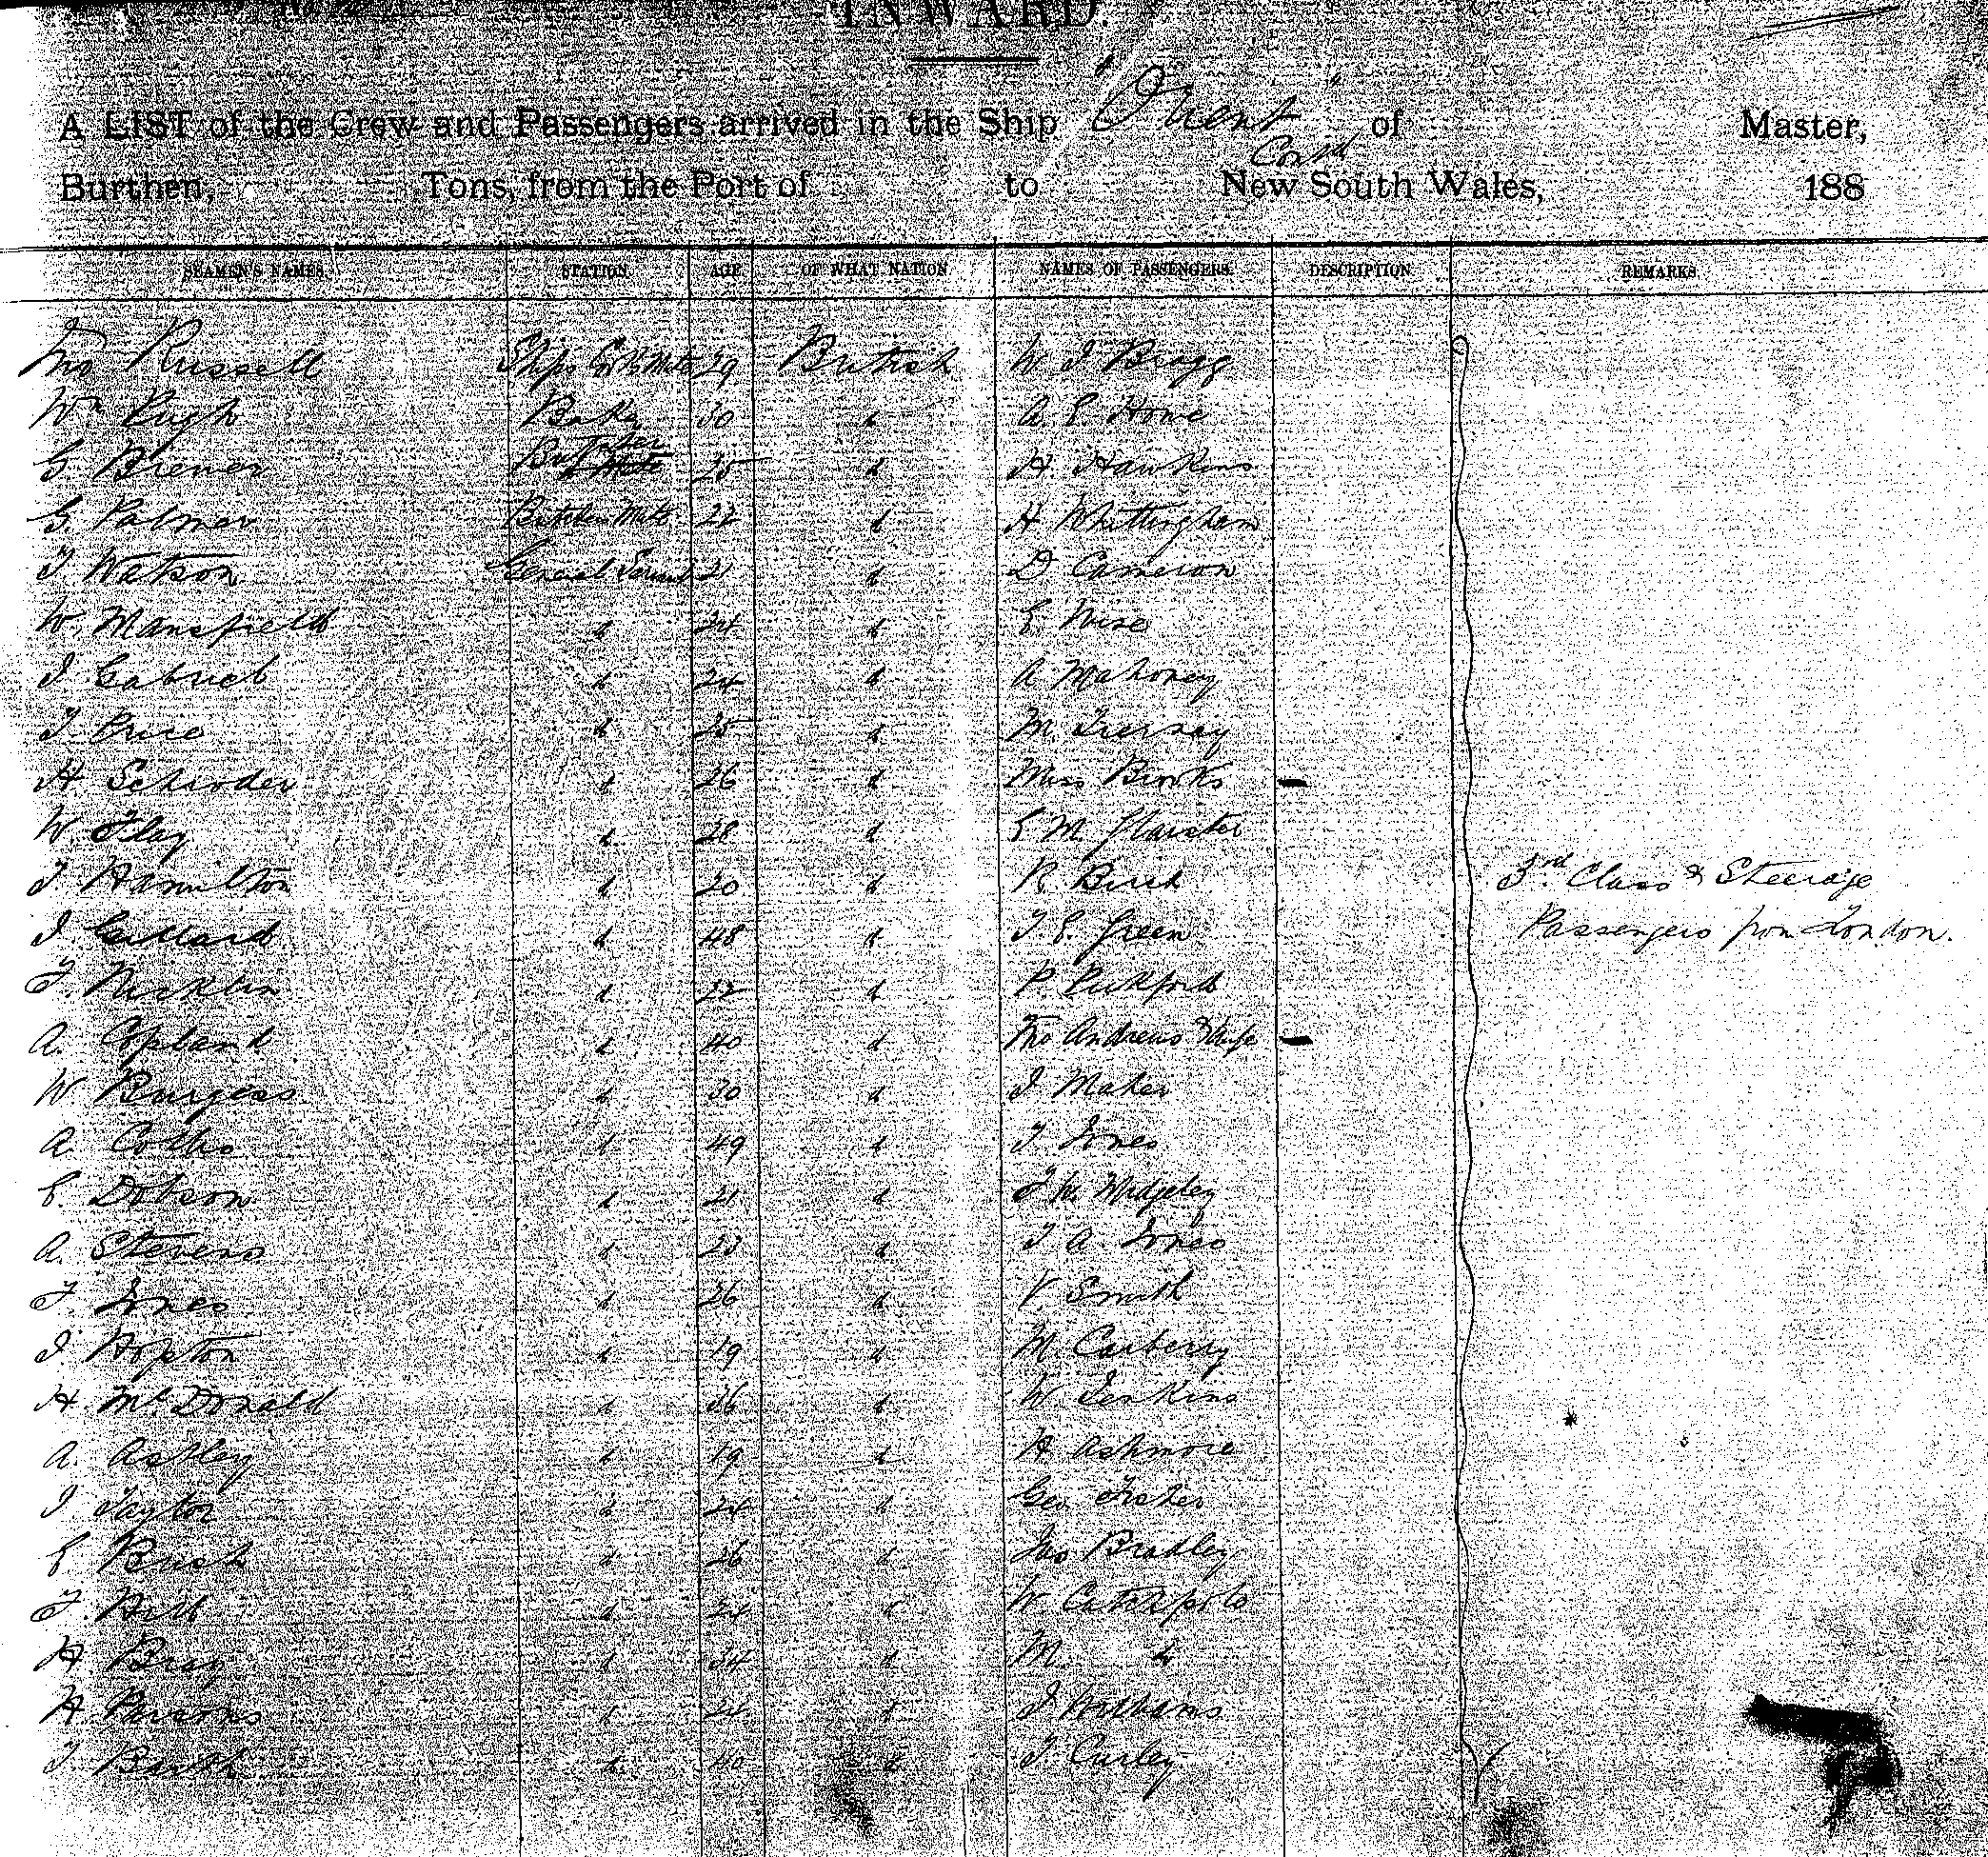 INWARD.
A LIST of the Crew and Passengers arrived in the Ship "Orient" of Master,
Contd
Burthen, Tons, from the Port of to New South Wales, 188
SEAMEN'S NAMES. STATION. AGE. OF WHAT NATION NAMES OF PASSENGERS. DESCRIPTION. REMARKS.
Jno Russell Ships Mate 29 British W. J Bragg
Wm Pugh Baker 30 d A. E. Howe
G. Brewer Butcher 25 d H Hawkins
G. Palmer Butchers Mate 22 d H Whittingham
J. Watson General Servant 21 d D Cameron
W. Mansfield d 24 d E. Wise
J Gabriel d 24 d A Mahoney
J. Price d 25 d M.
H Schroder d 26 d Miss Binks
W. Tiley d 28 d E M.
J Hamilton d 20 d R Birch 3rd Class & Steerage
J d 48 d J E. Green Passengers from London.
F. Nicklin d 22 d P. Pickford
A. Copland d 40 d Tho Andrews & Wife
W Burgess d 30 d J Maher
A. d 49 d J. Jones
C. Dobson d 21 d J W. Widgeley
A. Stevens d 23 d J A. Jones
F. Jones d 26 d V. Smith
J. Hopton d 19 d M. Carberry
H. McDonald d 36 d W. Jenkins
A. Astley d 19 d H Ashmore
J Taylor d 24 d Geo. Fisher
E Rush d 26 d Jno Bradley
F. Hill d 24 d W.
H Bray d 34 d M. d
H Parsons d 22 d J
J. d 40 d J. Curley